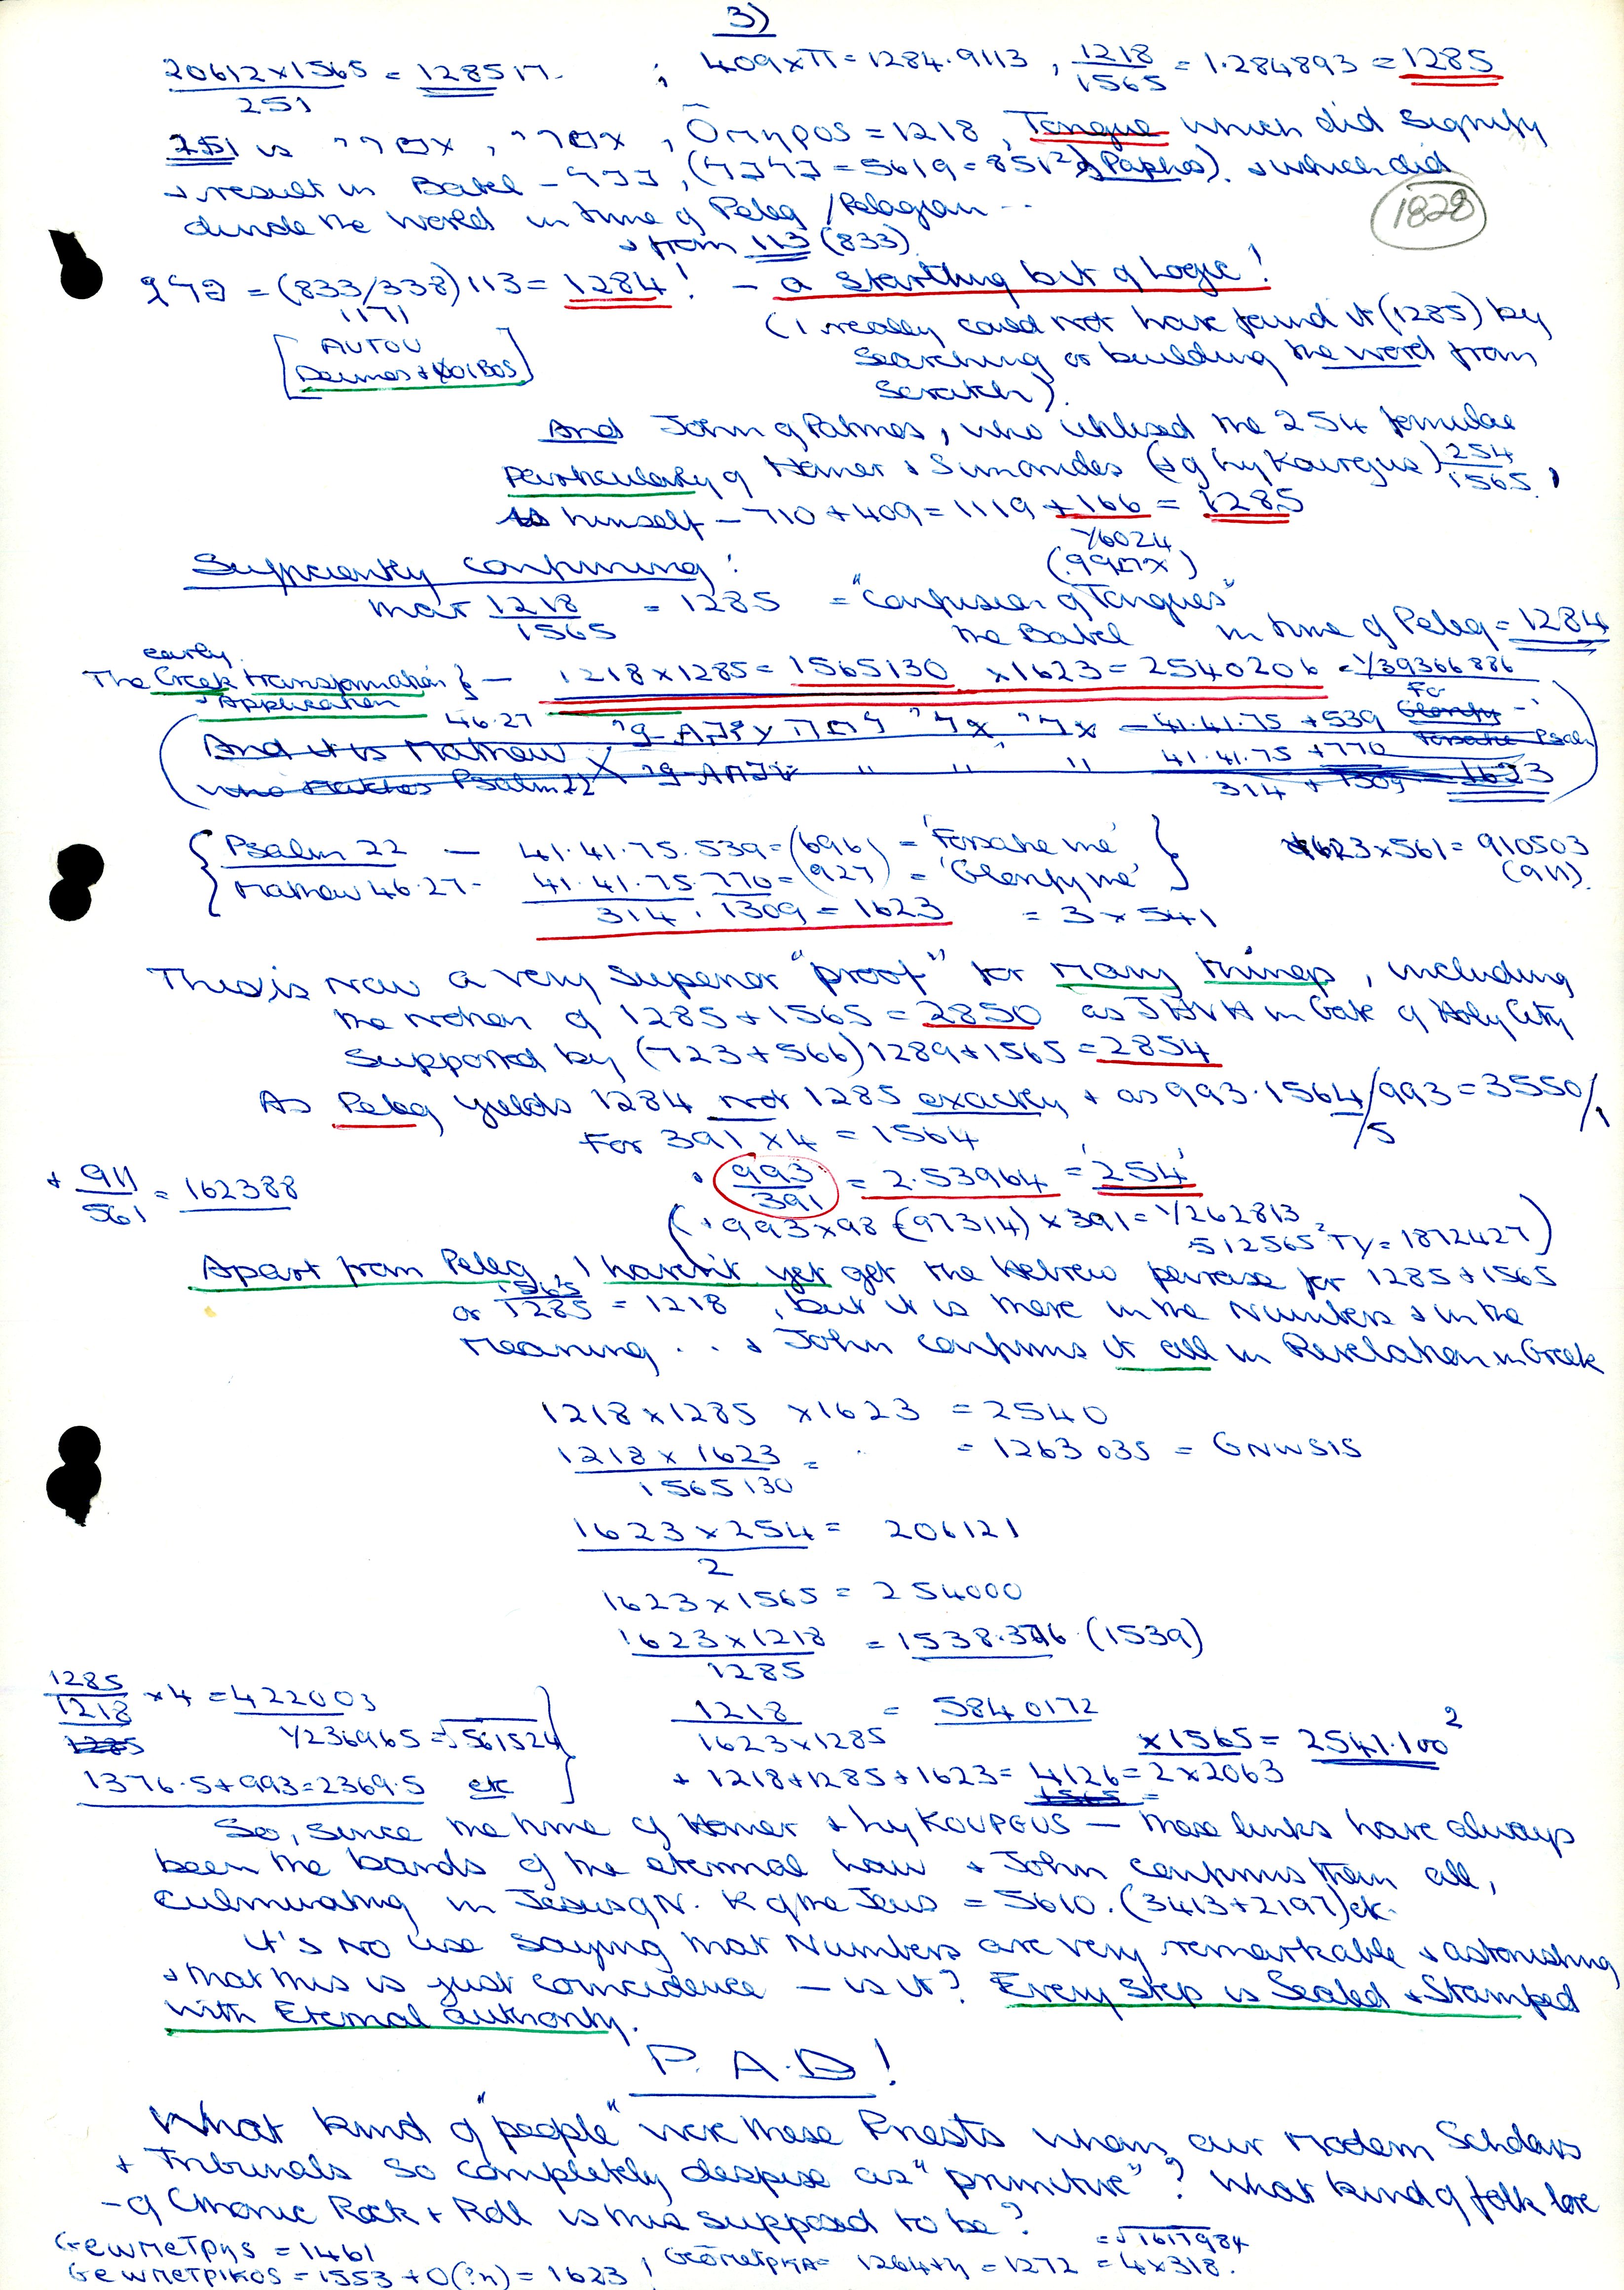 3)
20612 x 1565 / 251 = 12851 ; 409 x π = 1284.9113 , 1218 / 1565 = 1.284893 = 1285
251 is , Ōmηρos = 1218, Tongue which did signify
+ result in Babel - = 5619 = 851² of Paphos) + which did
divide the world in time of Peleg / Pelagian --
1828
+ from 113 (833)
= (833/338) 113 = 1284! - a startling bit of Logic!
1171
[AUTOU
Deimos + ϕOIBOS]
(I really could not have found it (1285) by
searching or building the word from
scratch).
And John of Patmos, who utilised the 254 formulae
particularly of Homer + Simonides (+ of LyKourgus) 254 / 1565,
himself - 710 + 409 = 1119 + 166 = 1285
1/6024
Sufficiently confirming!
that 1218 / 1565 = 1285 = "Confusion of Tongues"
the Babel in time of Peleg = 1284
The early Greek transformation + Application } - 1218 x 1285 = 1565130 x 1623 = 2540206 = 1/39366886
46.27 = 41.41.75 + 539
And it is Mathew
who matches Psalm 22 " " " 41.41.75 + 770
314 + 1309 = 1623
{ Psalm 22 - 41.41.75.539 = (696) = 'Forsake me' } 1623 x 561 = 910503
Mathew 46.27 - 41.41.75.770 = (927) = 'Glorify me' (911).
314 . 1309 = 1623 = 3 x 541
This is now a very superior "proof" for many things, including
the notion of 1285 + 1565 = 2850 as JHVH in Gate of Holy City
supported by (723 + 566) 1289 + 1565 = 2854
As Peleg yields 1284 not 1285 exactly + as 993.1564/993 = 3550/1
/5
For 391 x 4 = 1564
+ 911 / 561 = 162388
+ 993 / 391 = 2.53964 = '254'
(+ 993 x 98 (= 97314) x 391 = 1/262813
512565² TY = 1872427)
Apart from Peleg, I haven't yet got the Hebrew pervase for 1285 + 1565
or 1565 / 1285 = 1218, but it is there in the Numbers + in the
meaning . . + John confirms it all in Revelation in Greek
1218 x 1285 x 1623 = 2540
1218 x 1623 / 1565130 = = 1263035 = GNWSIS
1623 x 254 / 2 = 206121
1623 x 1565 = 254000
1623 x 1218 / 1285 = 1538.376 (1539)
1285 / 1218 x 4 = 422003
1285
1/236965 = √561524
1376.5 + 993 = 2369.5 etc
1218 / 1623 x 1285 = 5840172
x 1565 = 2541.100²
+ 1218 + 1285 + 1623 = 4126 = 2 x 2063
+1565 =
So, since the time of Homer + LyKOUPGUS - these links have always
been the bonds of the eternal Law + John confirms them all,
culminating in Jesus of N. K of the Jews = 5610. (3413 + 2197) etc.
It's no use saying that Numbers are very remarkable + astonishing
+ that this is just coincidence - is it? Every Step is Sealed + Stamped
with Eternal authority.
P. A. D!
What kind of "people" were these Priests whom our modern Scholars
+ Tribunals so completely despise as "primitive"? What kind of folk lore
- of Chronic Rock + Roll is this supposed to be?
GewmeTρηs = 1461
GewmeTρIKOS = 1553 + O(?n) = 1623 ; GeōmeTρηA = 1264 + η = 1272 = 4 x 318.
= √1617984